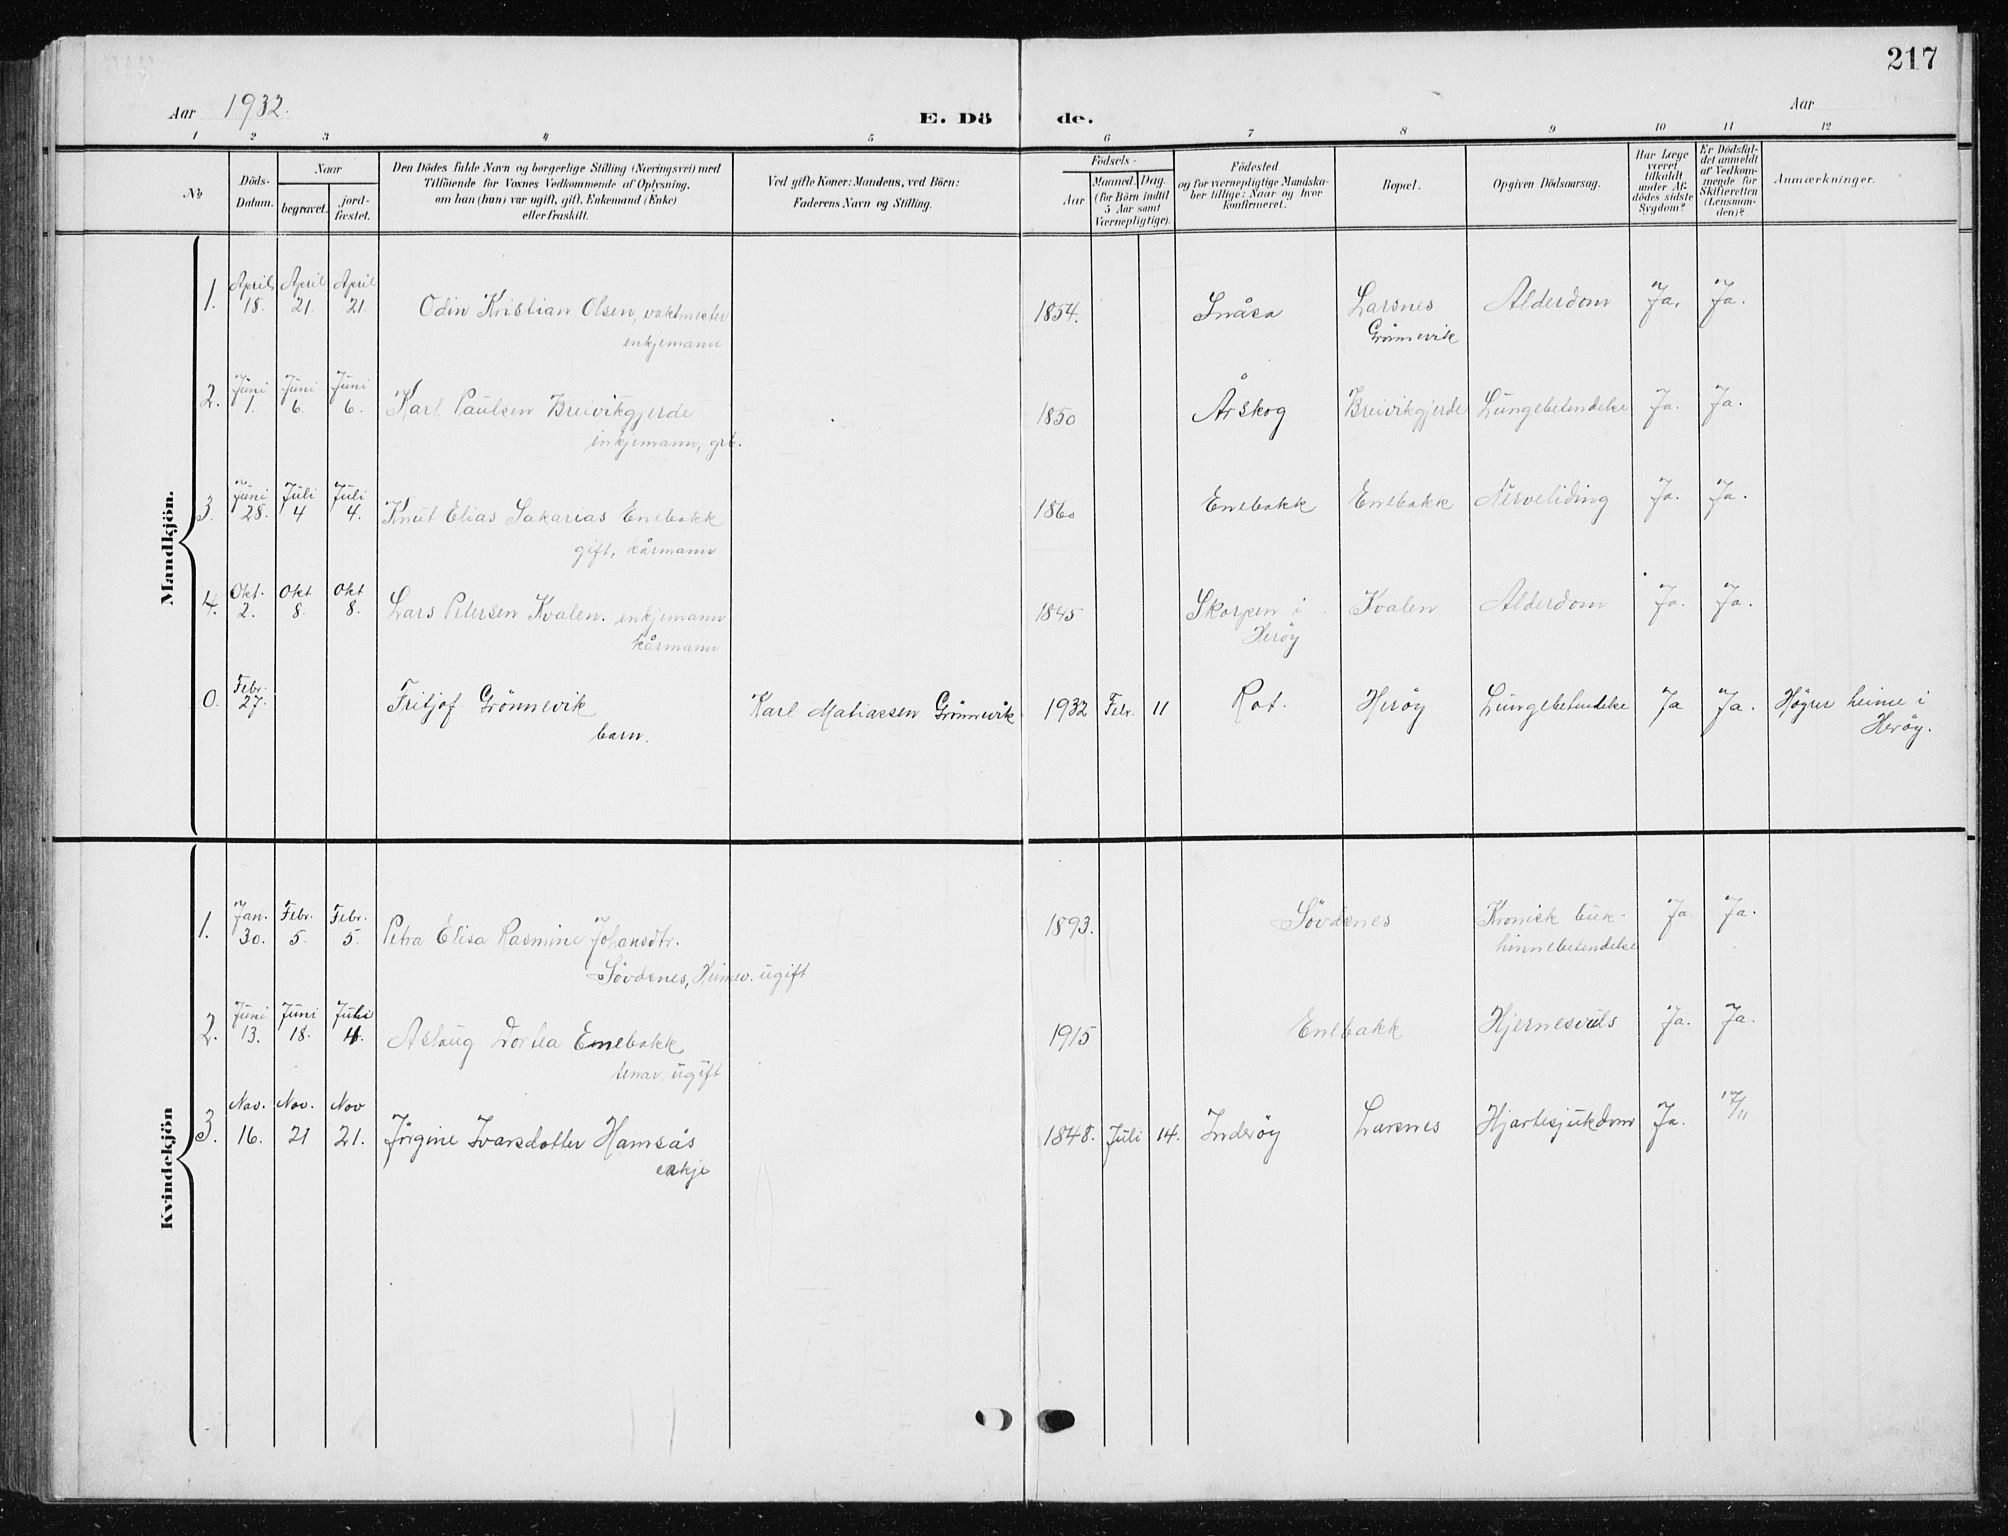 217
Aar 1932.
E. Döde.
Aar
1 2 3 4 5 6 7 8 9 10 11 12
No
Döds-Datum.
Naar
begravet.
jord-fæstet.
Den Dödes fulde Navn og borgerlige Stilling (Næringsvei) med
Tilföiende for Voxnes Vedkommende af Oplysning,
om han (hun) var ugift, gift, Enkemand (Enke)
eller fraskilt.
Ved gifte Koner: Mandens, ved Börn:
Faderens Navn og Stilling.
Födsels-
Aar
Maaned. Dag.
(for Börn indtil
5 Aar samt
Værnepligtige).
Födested
og for værnepligtige Mandska-
ber tillige: Naar og hvor
konfirmeret.
Bopæl.
Opgiven Dödsaarsag.
Har Læge
været
tilkaldt
under Af-
dödes sidste
Sygdom?
Er Dödsfal-
det anmeldt
af Vedkom-
mende for
Skifteretten
(Lensman-
den)?
Anmærkninger.
Mandkjön.
1. April 18. April 21. April 21. Odin Kristian Olsen, vaktmester 1854. Snåsa Larsnes Alderdom Ja. Ja.
enkjemann Grönnevik
2. Juni 1. Juni 6. Juni 6. Karl Paulsen Breivikgjerde 1850 Årskog Breivikgjerde Lungebetendelse Ja. Ja.
enkjemann, grb.
3. Juni 28. Juli 4 Juli 4. Knut Elias Sakarias Enebakk 1860 Enebakk Enebakk Nerveliding Ja. Ja.
gift, kårmann
4. Okt. 2. Okt 8. Okt 8. Lars Petersen Kvalen. enkjemann 1845 Skorpen i Kvalen Alderdom Ja. Ja.
kårmann Heröy
0. Febr. 27. Fritjof Grönnevik Karl Matiassen Grönnevik 1932 Febr. 11 Rot. Heröy Lungebetendelse Ja Ja. Högrer heime i
barn. Heröy.
Kvindekjön
1. Jan. 30. Febr. 5. Febr. 5. Petra Elisa Rasmine Johansdtr. 1893. Sövdsnes Kronisk buk- Ja Ja.
Sövdsnes, Heimev. ugift hinnebetendelse
2. Juni 13. Juni 18. Juli 4. Aslaug Dortea Enebakk 1915 Enebakk Hjernesvuls Ja. Ja.
tenar, ugift
3. Nov. 16. Nov. 21 Nov 21. Jörgine Ivarsdotter Hamsås 1848. Juli 14. Inderöy Larsnes Hjartesjukdom Ja. 17/11
enkje